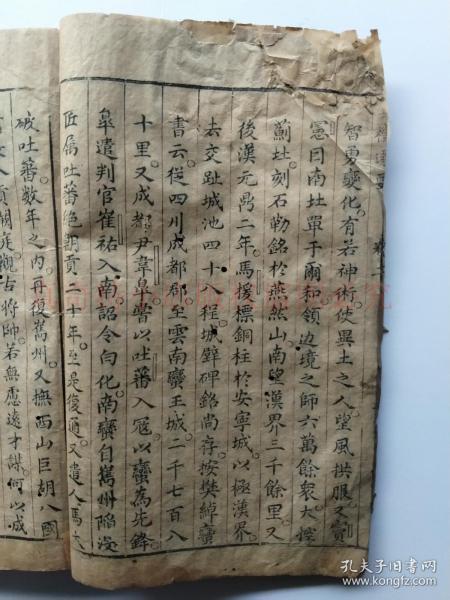 智勇變化有若神術使異土之人望風拱服又竇
憲曰南北單于爾和領邊境之師六萬餘衆大搾
薊北刻石勒銘於燕然山南望漢界三千餘里又
後漢元鼎二年馬援標銅柱於安寧城以極漢界
去交趾城池四十八程城壁碑銘尚存按樊綽蠻
書云從四川成都郡至雲南蠻王城二千七百八
十里又成都尹韋皐嘗以吐蕃入寇以蠻為先鋒
皐遣判官崔祐入南詔令向化南蠻自嶲州陷沒
臣属吐蕃絶朝貢二十年至是復通又遣人馬大
破吐蕃數年之内再復嶲州又撫西山巨胡八國
入貢闕庭觀古將帥若無慮遠才謀何以成
孔夫子旧书网